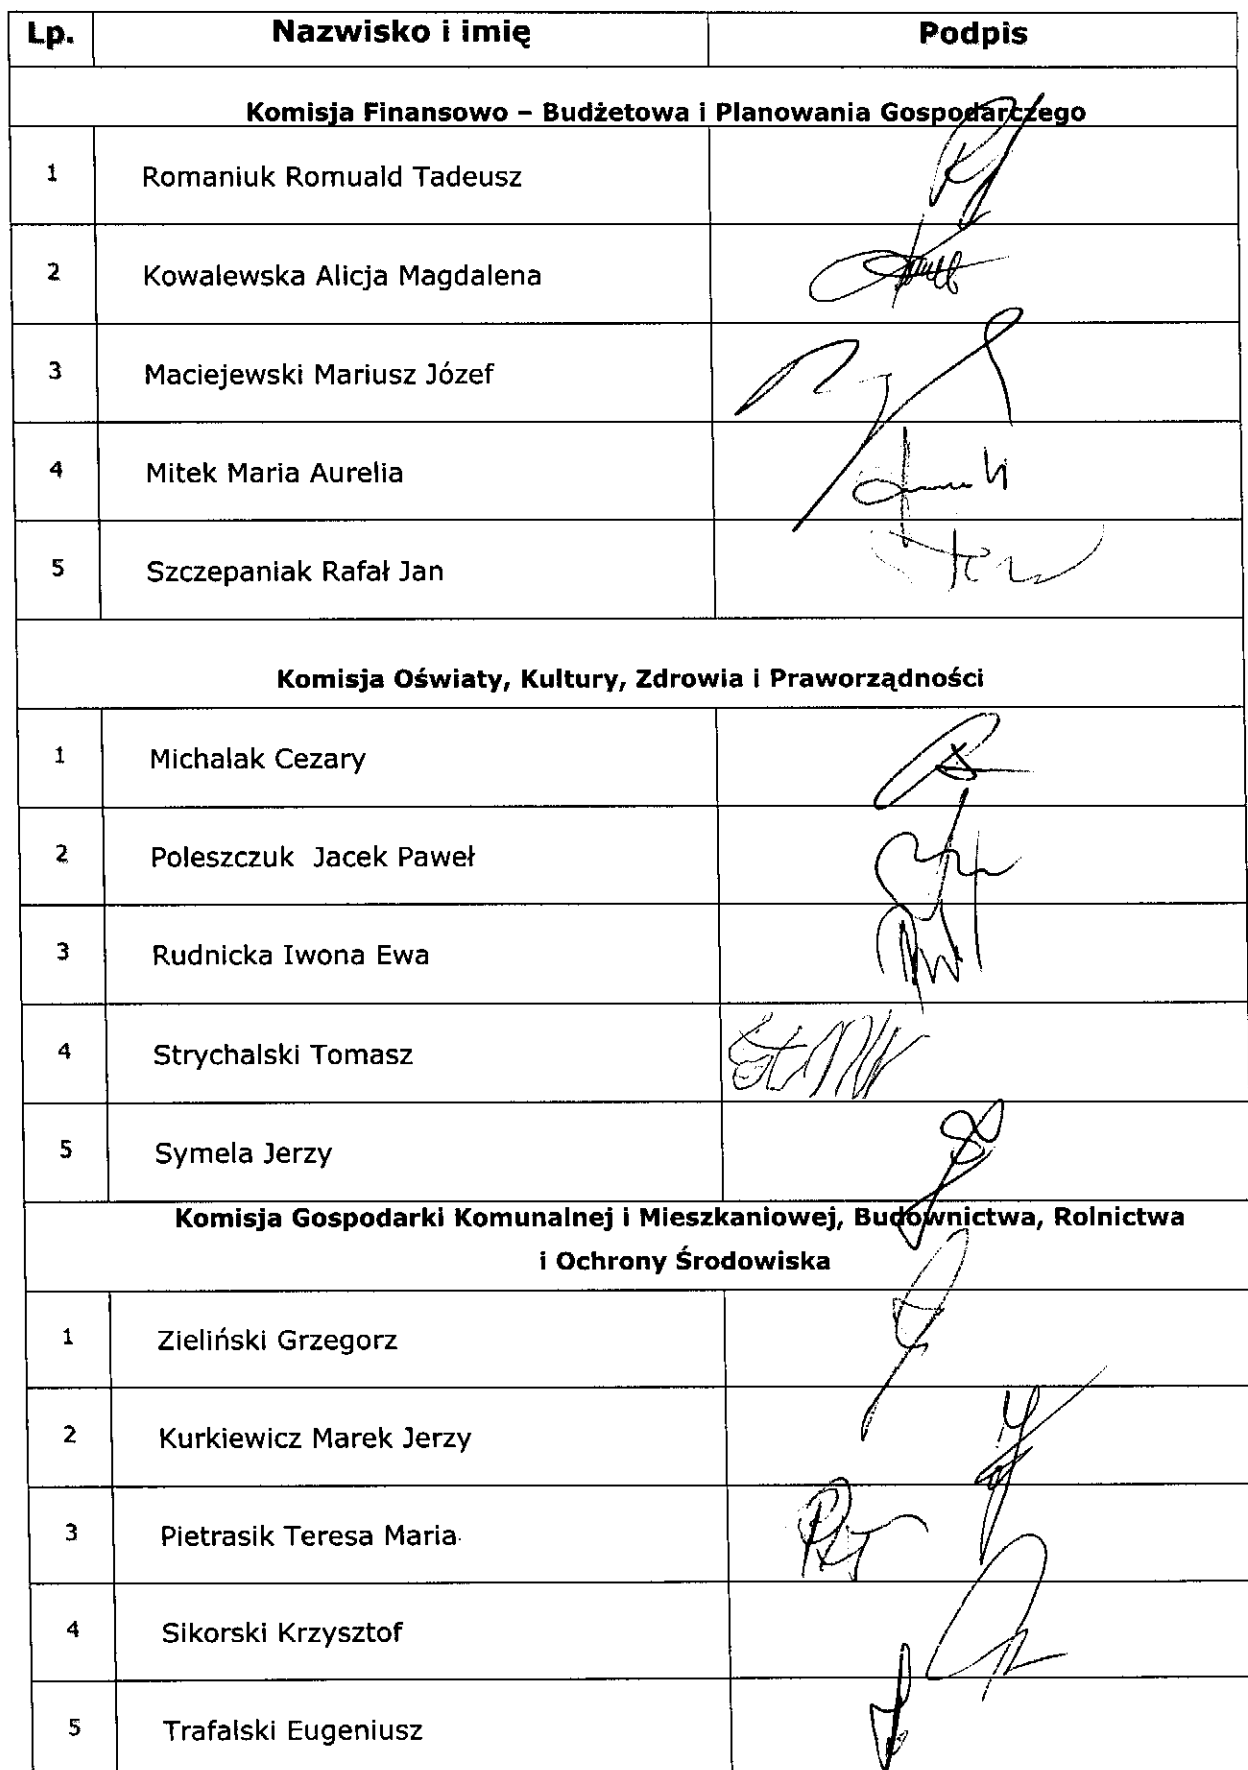 Lp. Nazwisko i imię Podpis
Komisja Finansowo – Budżetowa i Planowania Gospodarczego
1 Romaniuk Romuald Tadeusz
2 Kowalewska Alicja Magdalena
3 Maciejewski Mariusz Józef
4 Mitek Maria Aurelia
5 Szczepaniak Rafał Jan
Komisja Oświaty, Kultury, Zdrowia i Praworządności
1 Michalak Cezary
2 Poleszczuk Jacek Paweł
3 Rudnicka Iwona Ewa
4 Strychalski Tomasz
5 Symela Jerzy
Komisja Gospodarki Komunalnej i Mieszkaniowej, Budownictwa, Rolnictwa
i Ochrony Środowiska
1 Zieliński Grzegorz
2 Kurkiewicz Marek Jerzy
3 Pietrasik Teresa Maria
4 Sikorski Krzysztof
5 Trafalski Eugeniusz